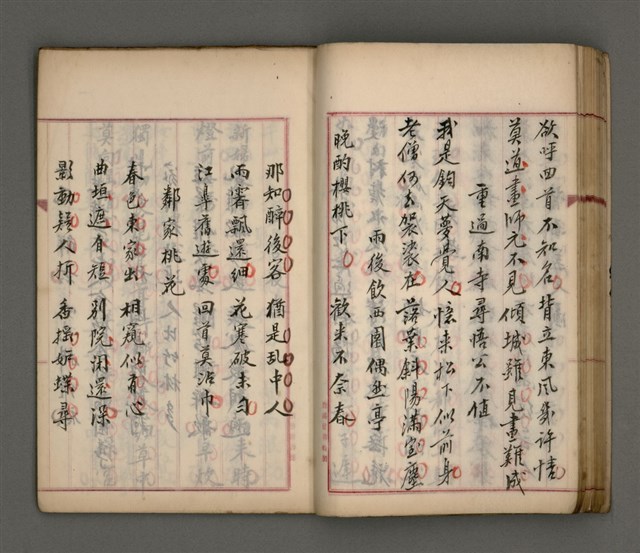 欲呼回首不知名 背立東風幾許情
莫道畫師元不見 傾城難見畫難成
重過南寺尋悟公不值
我是鈞天夢覺人 憶來松下似前身
老僧何去袈裟在 落葉斜陽滿室塵
雨後飲西園偶企亭
晚酌櫻桃下 歡來不奈春
那知醉後客 猶是亂中人
雨霽飄還細 花寒破未勻
江皐舊遊處 回首莫沾巾
鄰家桃花
春色東家出 相窺似有心
曲垣遮自短 別院閉還深
影動疑人折 香搖妬蝶尋